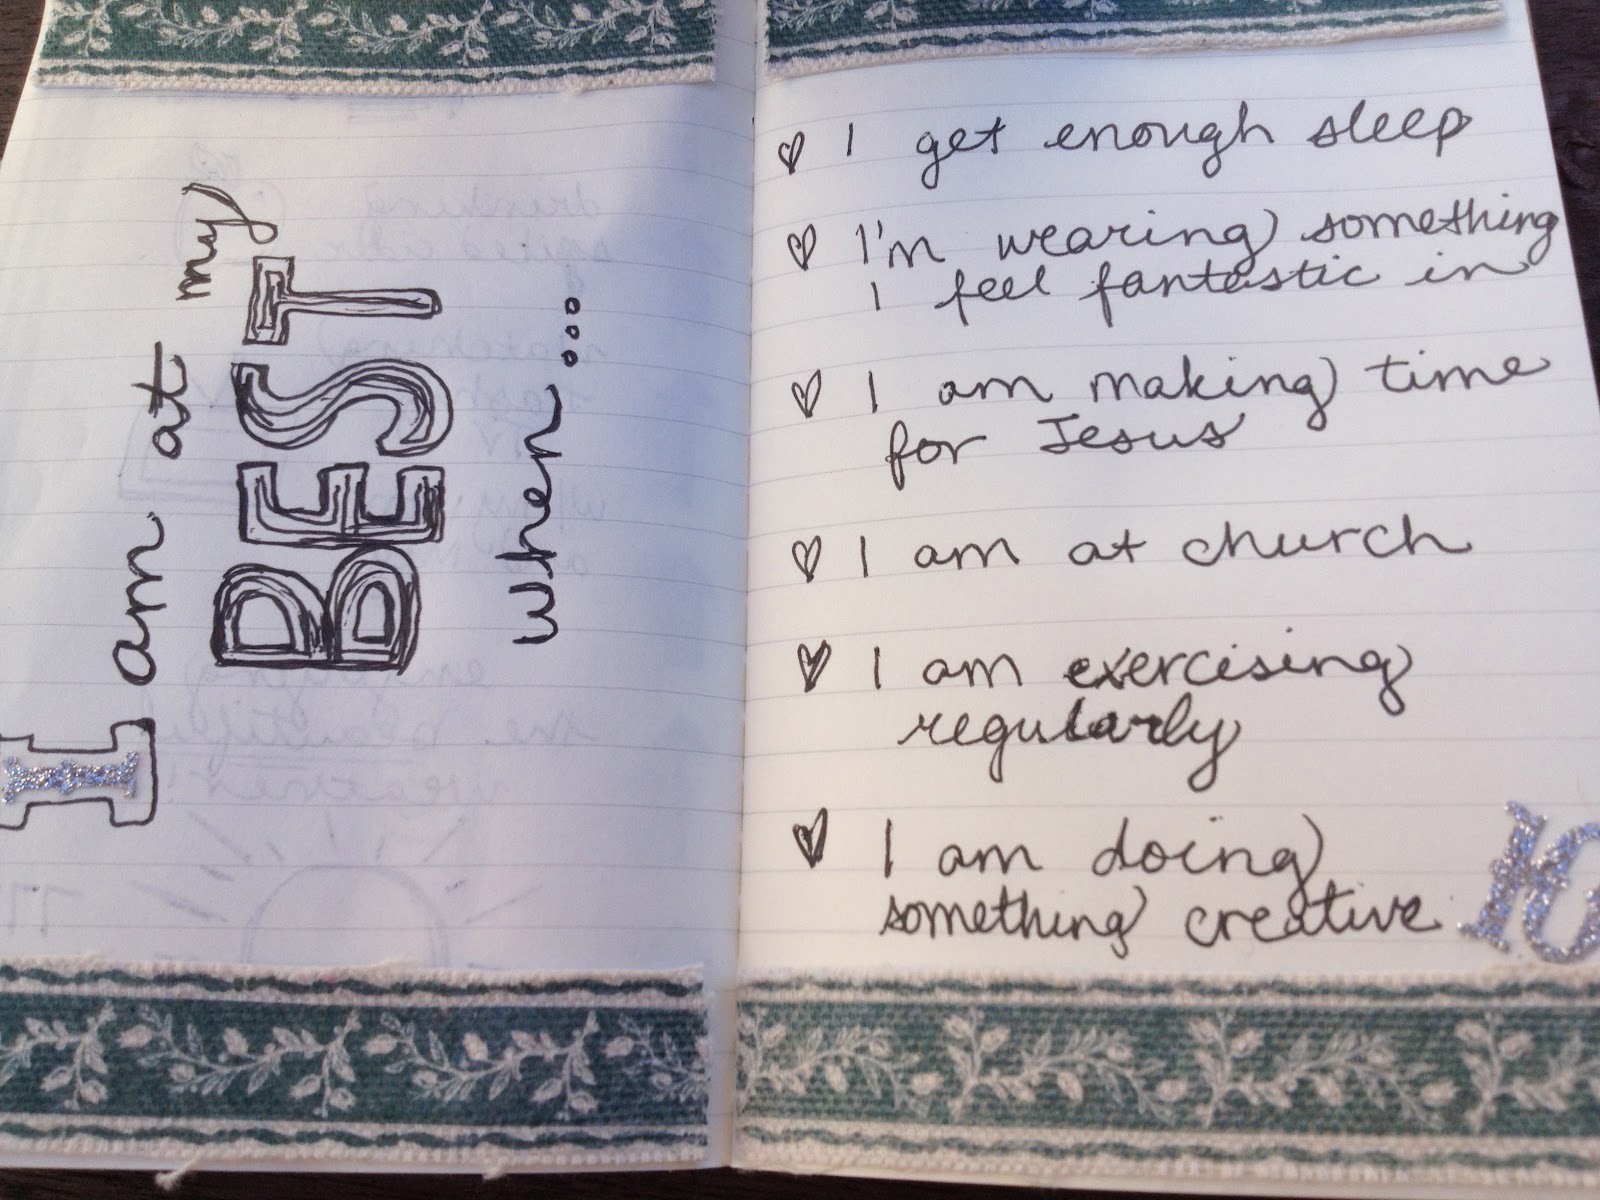 I am at my
BEST
when...
I get enough sleep
I'm wearing something
I feel fantastic in
I am making time
for Jesus
I am at church
I am exercising
regularly
I am doing
something creative
10